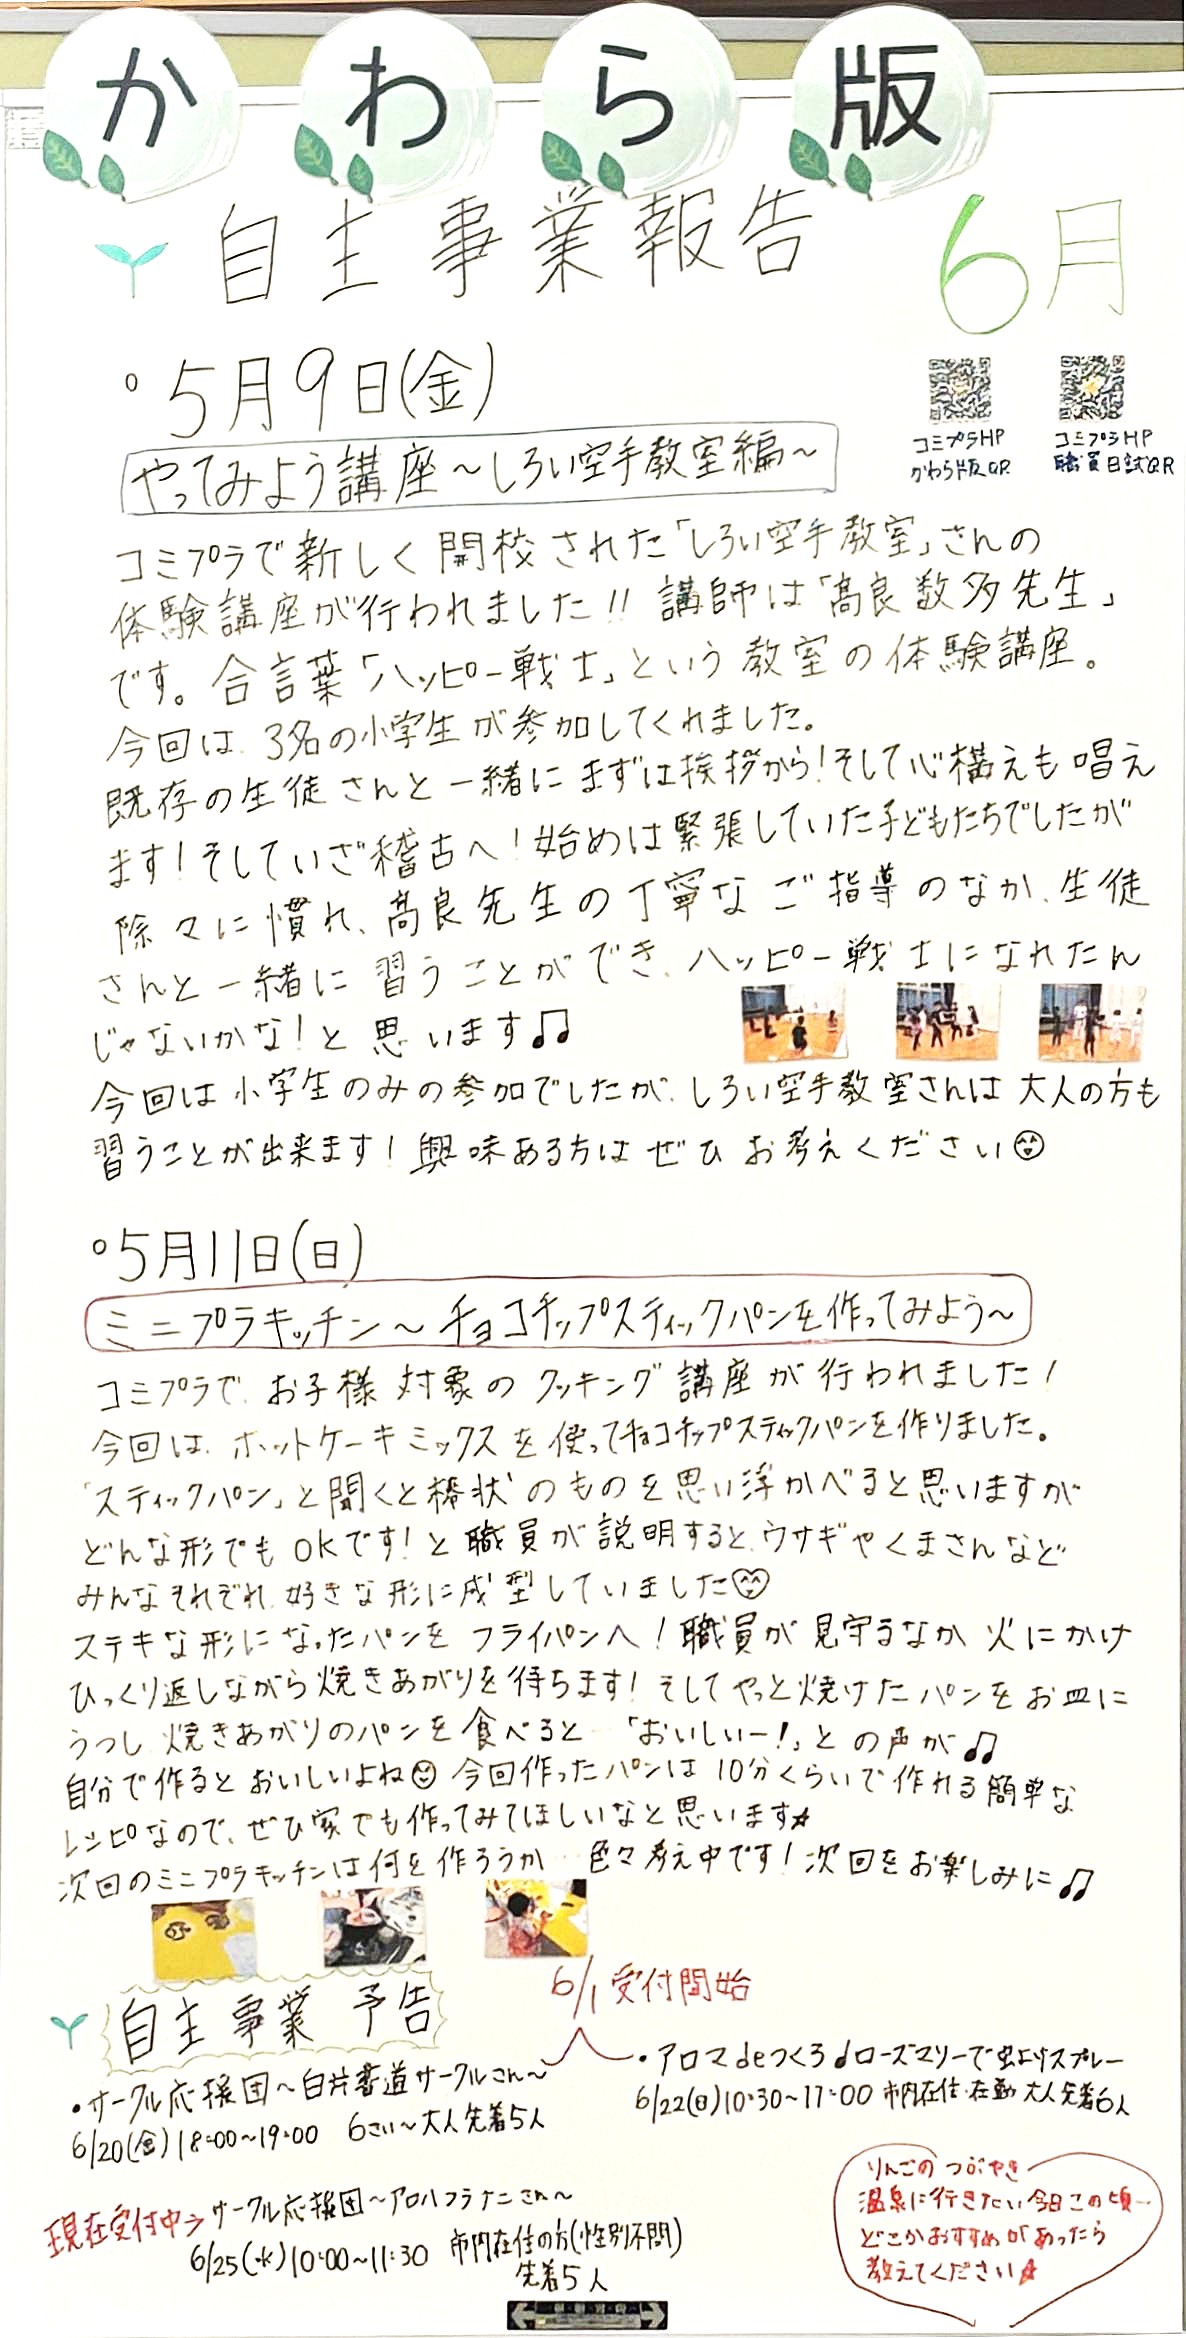 かわら版
自主事業報告 6月
コミプラHP
かわら版QR
コミプラHP
職員日誌QR
°5月9日(金)
やってみよう講座～しろい空手教室編～
コミプラで新しく開校された「しろい空手教室」さんの
体験講座が行われました!! 講師は「髙良数多先生」
です。合言葉「ハッピー戦士」という教室の体験講座。
今回は、3名の小学生が参加してくれました。
既存の生徒さんと一緒にまずは挨拶から!そして心構えも唱え
ます!そしていざ稽古へ!始めは緊張していた子どもたちでしたが
除々に慣れ、髙良先生の丁寧なご指導のなか、生徒
さんと一緒に習うことができ、ハッピー戦士になれたん
じゃないかな!と思います♫
今回は小学生のみの参加でしたが、しろい空手教室さんは大人の方も
習うことが出来ます!興味ある方はぜひお考えください
°5月11日(日)
ミニプラキッチン～チョコチップスティックパンを作ってみよう～
コミプラで、お子様対象のクッキング講座が行われました!
今回は、ホットケーキミックスを使ってチョコチップスティックパンを作りました。
「スティックパン」と聞くと棒状のものを思い浮かべると思いますが
どんな形でもOKです!と職員が説明すると、ウサギやくまさんなど
みんなそれぞれ、好きな形に成型していました
ステキな形になったパンをフライパンへ!職員が見守るなか火にかけ
ひっくり返しながら焼きあがりを待ちます!そしてやっと焼けたパンをお皿に
うつし、焼きあがりのパンを食べると…「おいしいー!」との声が♫
自分で作るとおいしいよね 今回作ったパンは10分くらいで作れる簡単な
レシピなので、ぜひ家でも作ってみてほしいなと思います☆
次回のミニプラキッチンは何を作ろうか…色々考え中です!次回をお楽しみに♫
自主事業 予告
6/1受付開始
・サークル応援団～白井書道サークルさん～
6/20(金)18:00～19:00 6さい～大人先着5人
・アロマdeつくろ♩ローズマリーで虫よけスプレー
6/22(日)10:30～11:00 市内在住・在勤 大人先着6人
現在受付中→サークル応援団～アロハフラナニさん～
6/25(水)10:00～11:30 市内在住の方(性別不問)
先着5人
りんごのつぶやき
温泉に行きたい今日この頃…
どこかおすすめがあったら
教えてください☆